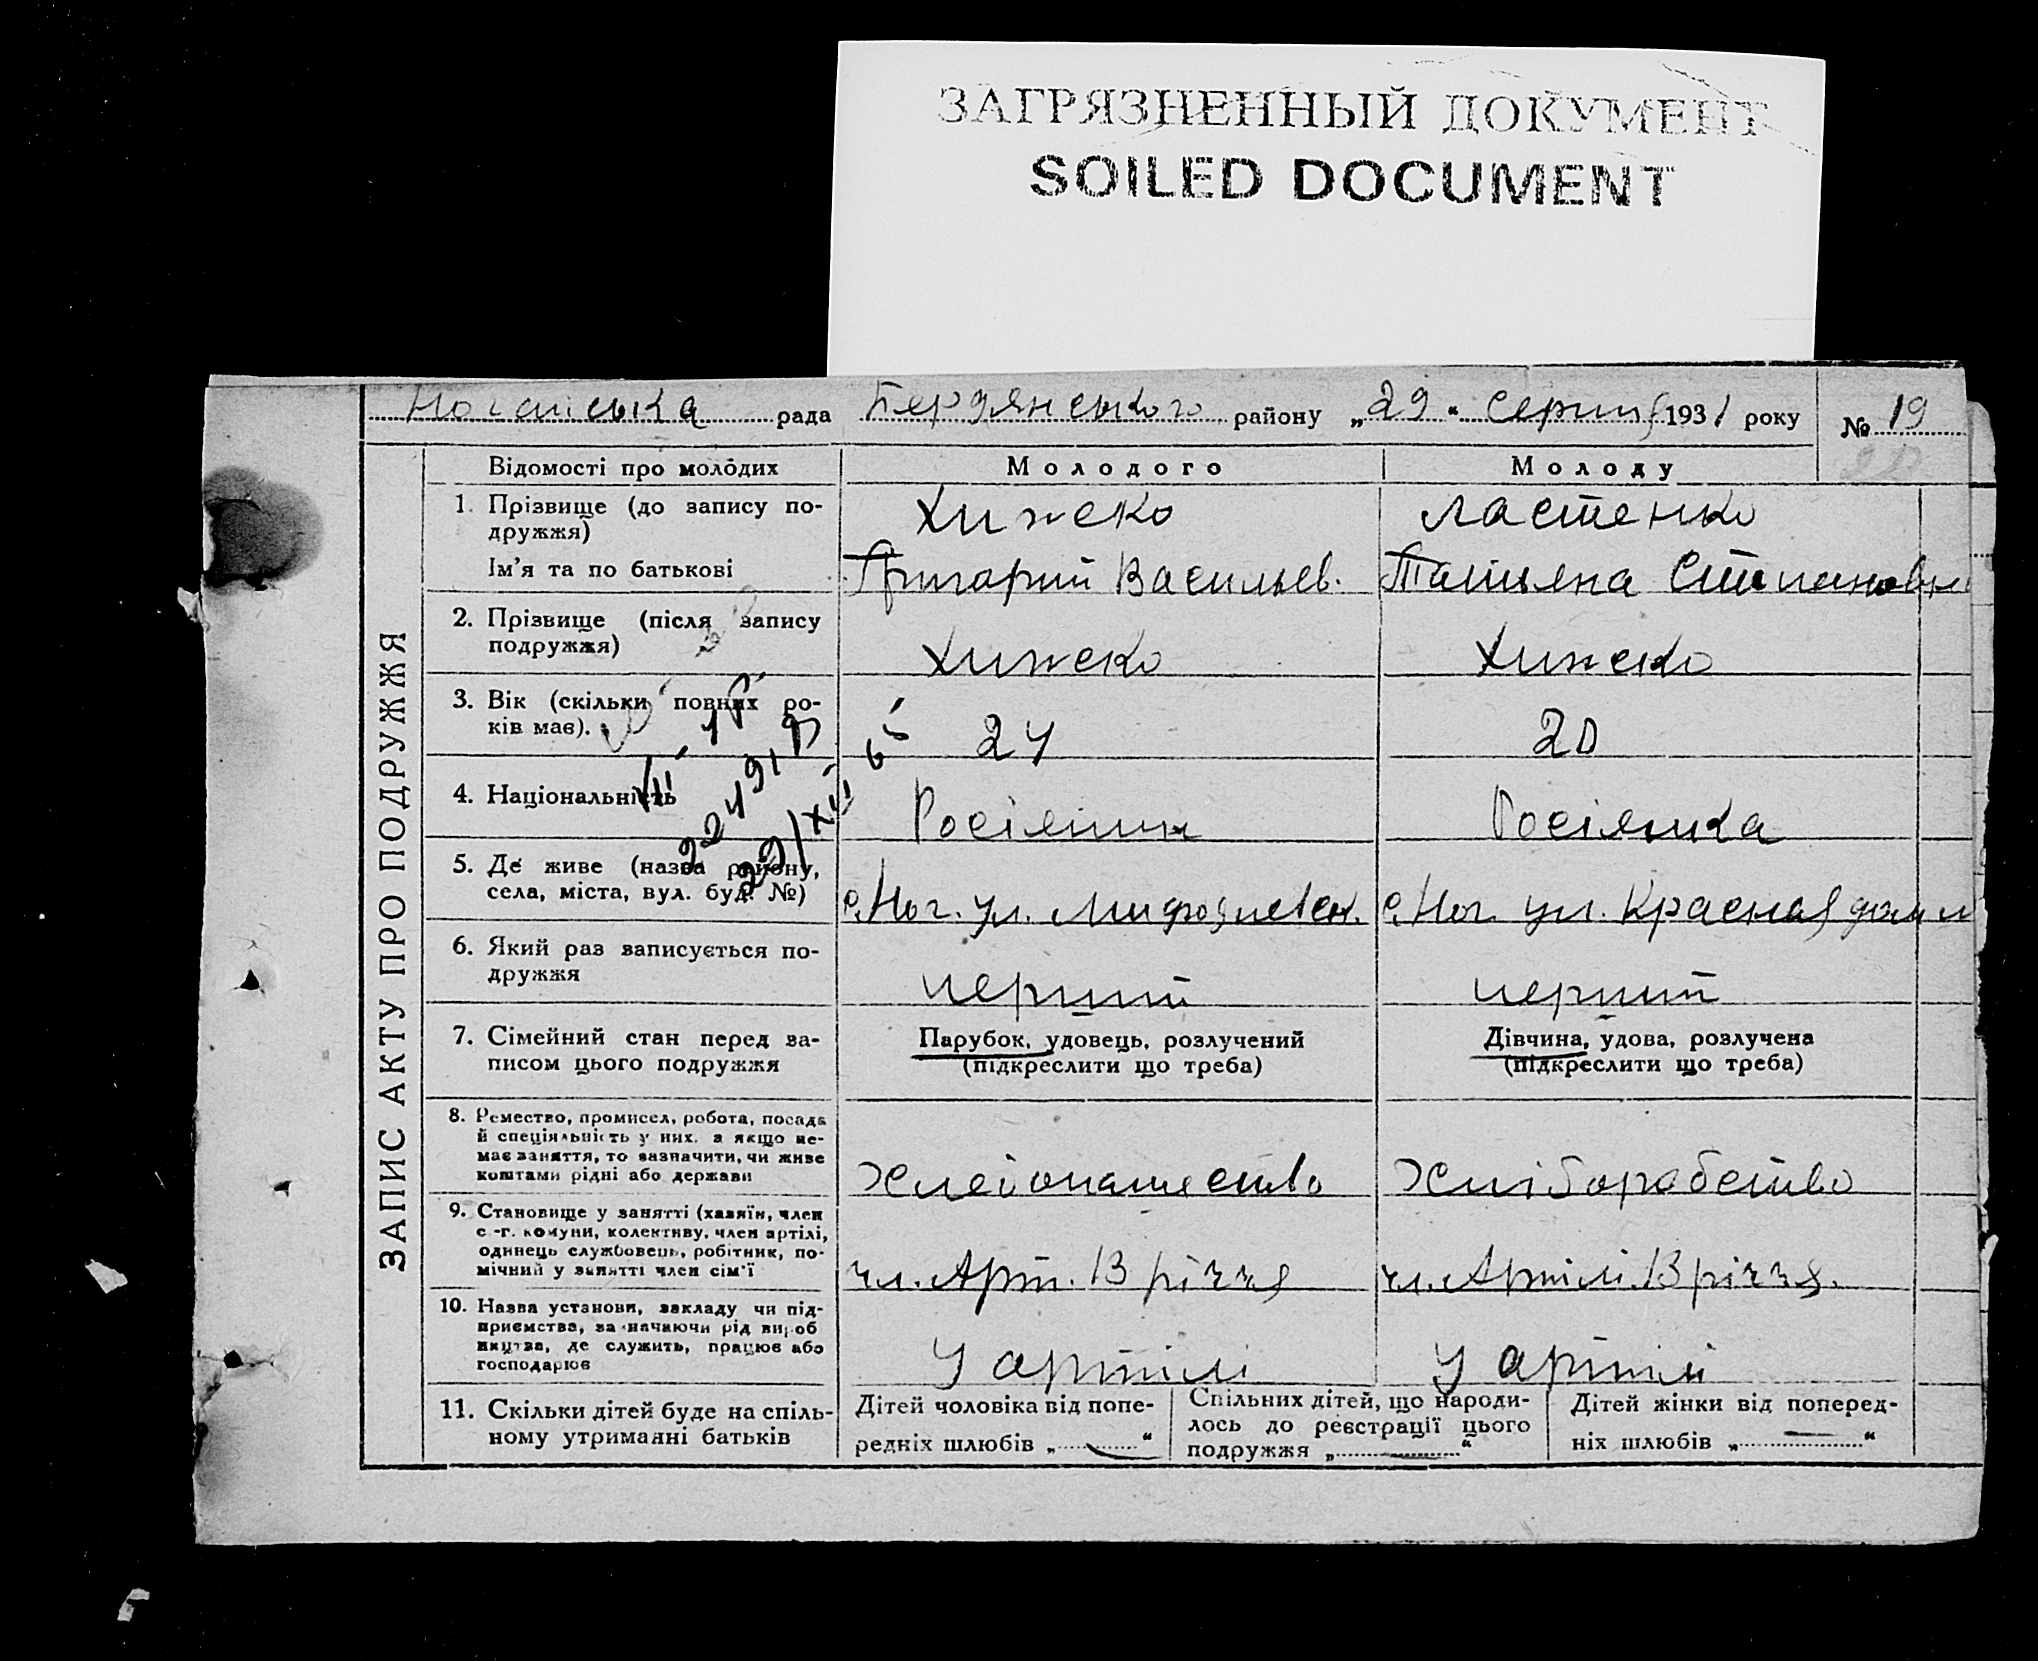 ЗАГРЯЗНЕННЫЙ ДОКУМЕНТ
SOILED DOCUMENT
Ногайська рада Бердянського району „29“ серпня 1931 року № 19
ЗАПИС АКТУ ПРО ПОДРУЖЖЯ
Відомості про молодих Молодого Молоду
1. Прізвище (до запису по-
дружжя) Хижеко Ластенко
Ім'я та по батькові Григорий Васильев. Татьяна Степановна
2. Прізвище (після запису
подружжя) Хижеко Хижеко
3. Вік (скільки повних ро-
ків має). 24 20
4. Національність Росіянин Росіянка
5. Де живе (назва району,
села, міста, вул. буд. №) с. Ног. ул. с. Ног. ул. Красная
6. Який раз записується по-
дружжя перший перший
7. Сімейний стан перед за-
писом цього подружжя
Парубок, удовець, розлучений
(підкреслити що треба)
Дівчина, удова, розлучена
(підкреслити що треба)
8. Ремество, промисел, робота, посада
й спеціяльність у них, а якщо не-
має заняття, то зазначити, чи живе
коштами рідні або держави
Хлебопашество Хліборобство
9. Становище у занятті (хазяїн, член
с.-г. комуни, колективу, член артілі,
одинець службовець, робітник, по-
мічний у занятті член сім'ї
чл. Арт. 13 річчя чл. Артілі 13 річчя.
10. Назва установи, закладу чи під-
приємства, зазначаючи рід вироб
ництва, де служить, працює або
господарює
У артілі У артілі
11. Скільки дітей буде на спіль-
ному утриманні батьків
Дітей чоловіка від попе-
редніх шлюбів „—“
Спільних дітей, що народи-
лось до реєстрації цього
подружжя „—“
Дітей жінки від поперед-
ніх шлюбів „—“